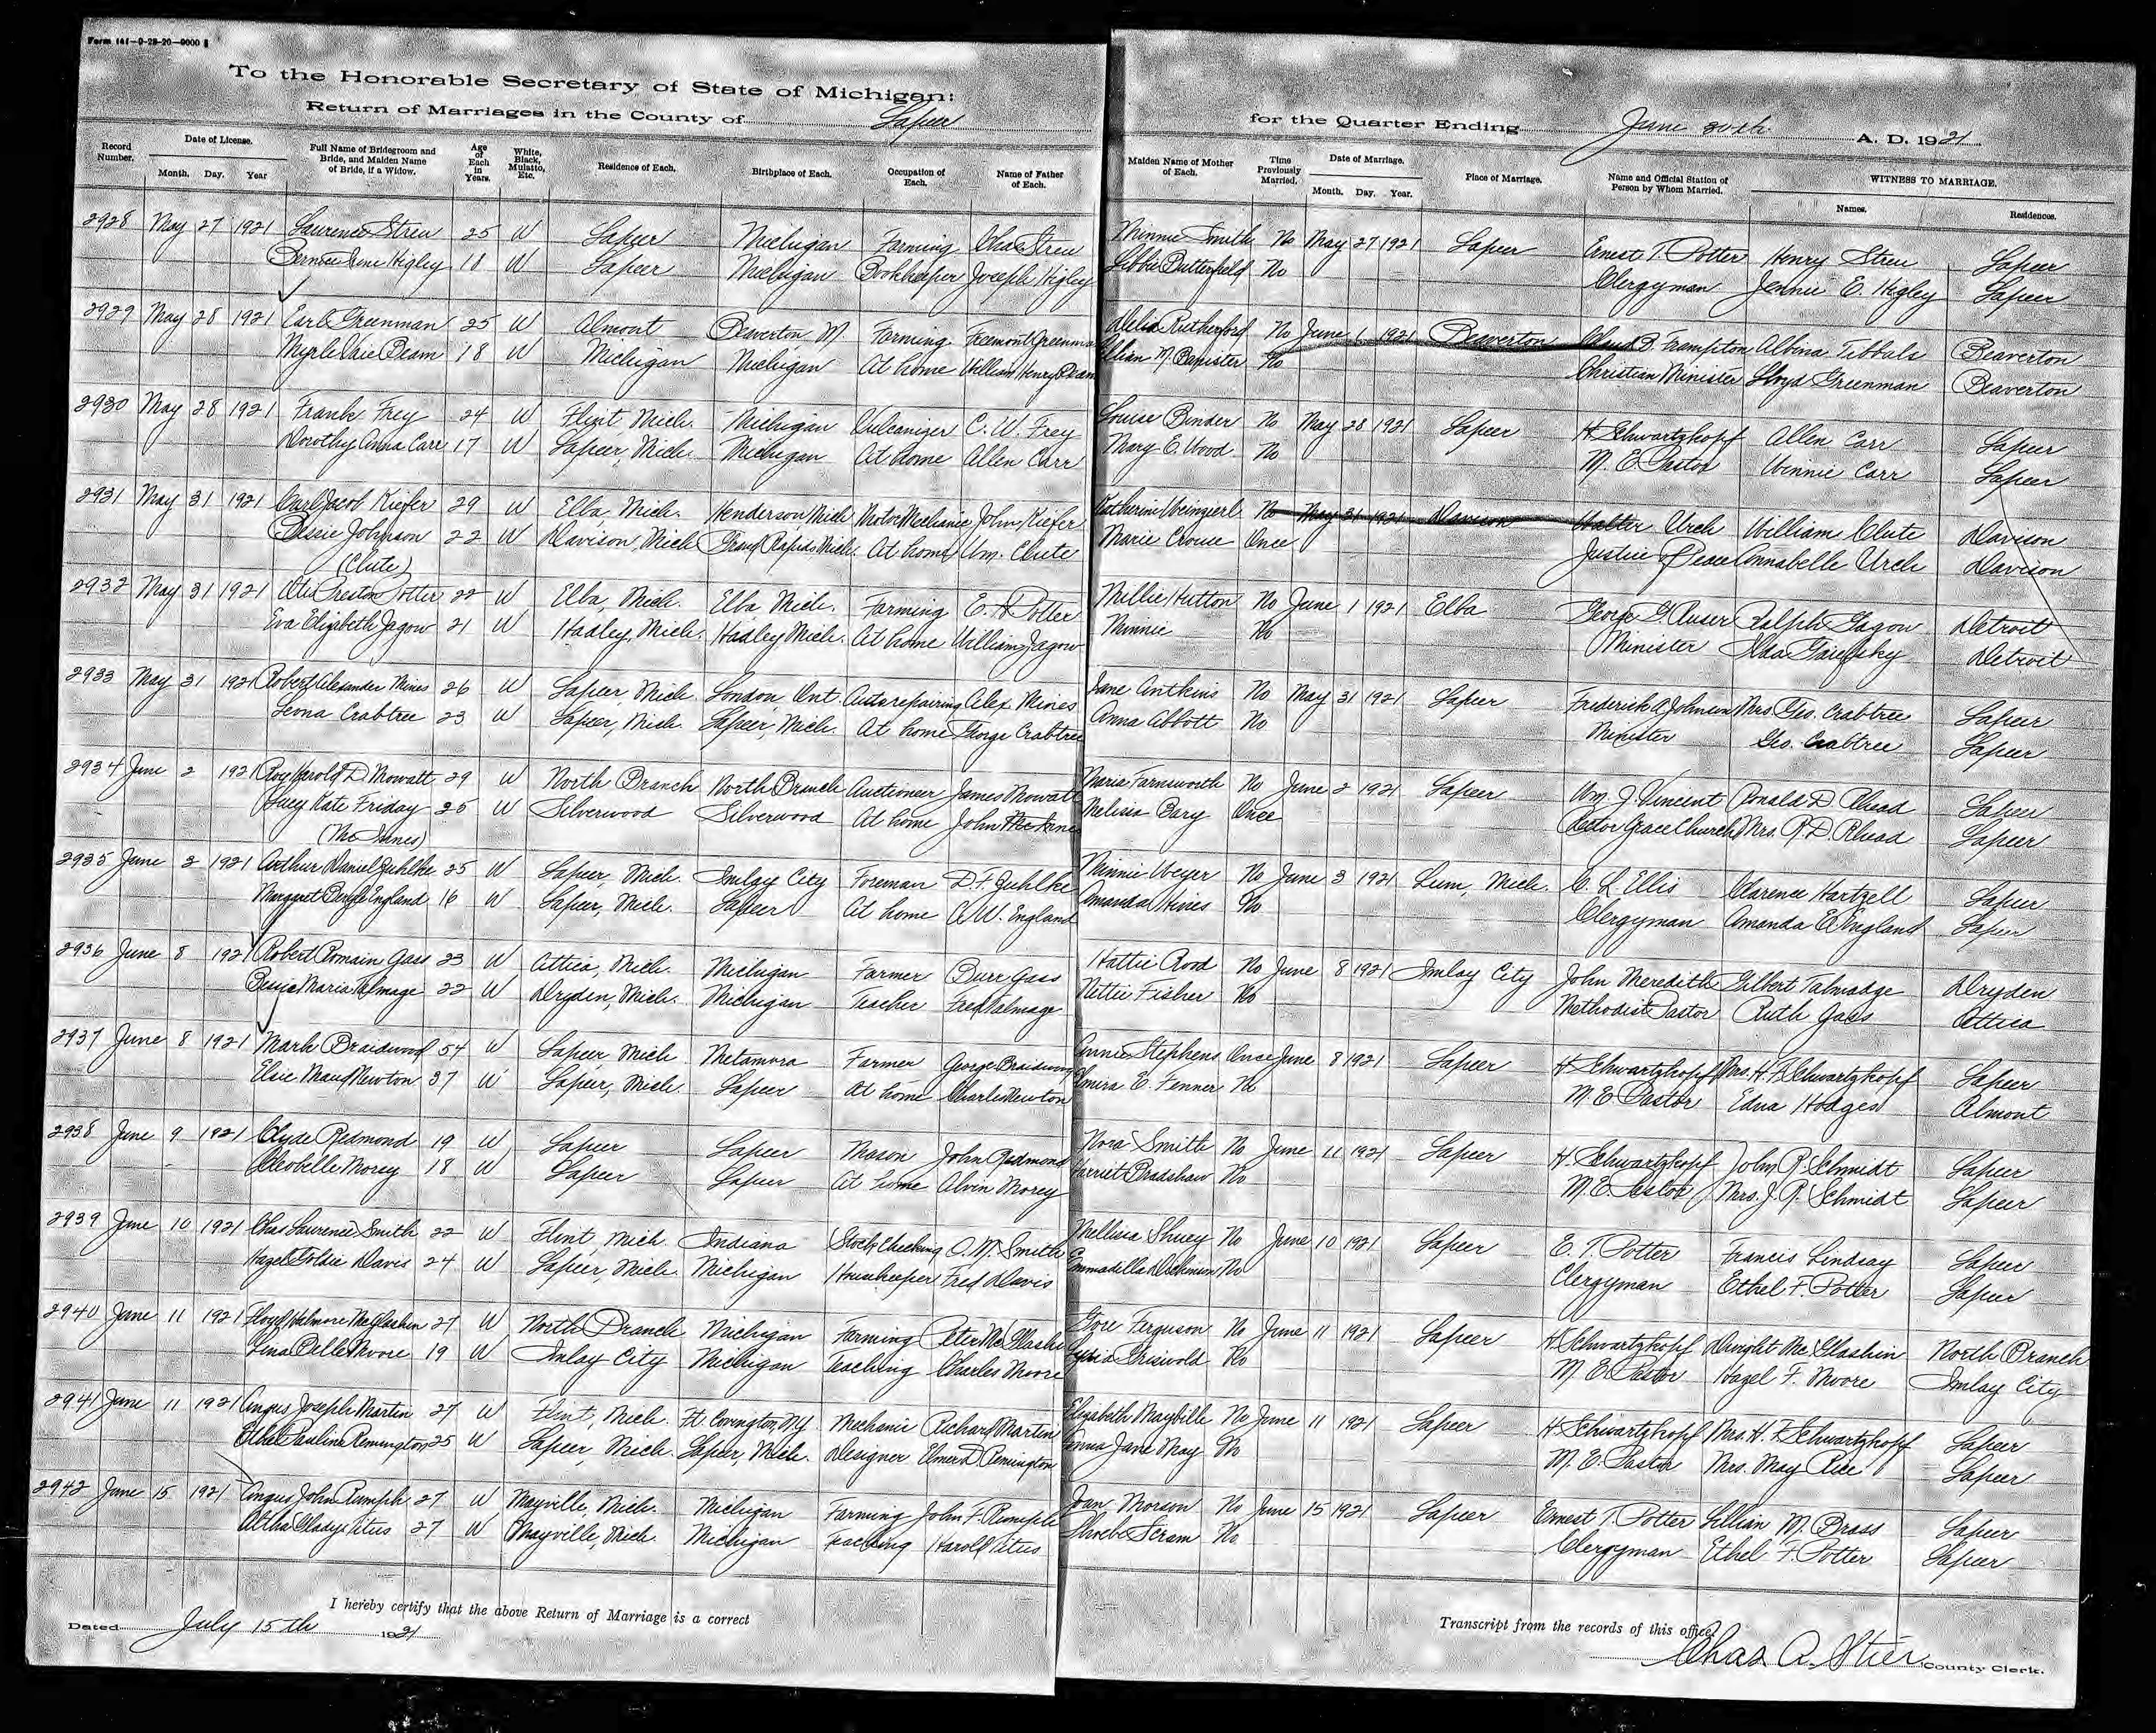 Form 141-9-28-20-9000
To the Honorable Secretary of State of Michigan:
Return of Marriages in the County of Lapeer for the Quarter Ending June 30th A. D. 1921
Record Number. Date of License. Month. Day. Year Full Name of Bridegroom and Bride, and Maiden Name of Bride, if a Widow. Age of Each in Years. White, Black, Mulatto, Etc. Residence of Each. Birthplace of Each. Occupation of Each. Name of Father of Each. Maiden Name of Mother of Each. Time Previously Married. Date of Marriage. Month. Day. Year. Place of Marriage. Name and Official Station of Person by Whom Married. WITNESS TO MARRIAGE. Names. Residences.
2928 May 27 1921 Laurence Streu 25 W Lapeer Michigan Farming Chas Streu Minnie Smith No May 27 1921 Lapeer Ernest T. Potter Henry Streu Lapeer
Bernice Higley 18 W Lapeer Michigan Bookkeeper Joseph Higley Libbie Butterfield No Clergyman Jennie E. Higley Lapeer
2929 May 28 1921 Earl Greenman 25 W Almont Beaverton, M. Farming Freemont Greenman Delia Rutherford No June 1 1921 Beaverton B. Frampton Albina Tibbals Beaverton
Beam 18 W Michigan Michigan At home William Henry Beam Lillian M. Banister No Christian Minister Lloyd Greenman Beaverton
2930 May 28 1921 Frank Frey 24 W Flint Mich. Michigan Vulcanizer C. W. Frey Louise Binder No May 28 1921 Lapeer H. Schwartzkopf Allen Carr Lapeer
Dorothy Anna Carr 17 W Lapeer, Mich. Michigan At home Allen Carr Mary E. Wood No M. E. Pastor Winnie Carr Lapeer
2931 May 31 1921 Carl Jacob Kiefer 29 W Elba Mich. Henderson Mich Motor Mechanic John Kiefer Katherine Weingierl No May 31 1921 Davison Walter Urch William Clute Davison
Bessie Johnson 22 W Davison, Mich Grand Rapids Mich. At home Wm. Clute Marie Crouse Once Justice of Peace Annabelle Urch Davison
(Clute)
2932 May 31 1921 Otis Preston Potter 22 W Elba, Mich. Elba Mich. Farming E. H. Potter Millie Hutton No June 1 1921 Elba George G. Ralph Jagow Detroit
Eva Elizabeth Jagow 21 W Hadley, Mich. Hadley Mich. At home William Jagow Minnie No Minister Ada Detroit
2933 May 31 1921 Robert Alexander Mines 26 W Lapeer, Mich. London, Ont. Auto repairing Alex Mines Jane Antkins No May 31 1921 Lapeer Frederick A. Johnson Mrs. Geo. Crabtree Lapeer
Leona Crabtree 23 W Lapeer, Mich. Lapeer, Mich. At home George Crabtree Anna Abbott No Minister Geo. Crabtree Lapeer
2934 June 2 1921 Roy Harold D. Mowatt 29 W North Branch North Branch Auctioneer James Mowatt Maria Farnsworth No June 2 1921 Lapeer Wm. J. Vincent Ronald D. Rhead Lapeer
Lucy Kate Friday 25 W Silverwood Silverwood At home John McInnes Melissa Bary Once Rector Grace Church Mrs. R. D. Rhead Lapeer
(McInnes)
2935 June 2 1921 Arthur Daniel Zuhlke 25 W Lapeer, Mich. Imlay City Foreman D. F. Zuhlke Minnie Weyer No June 3 1921 Lum, Mich. C. L. Ellis Clarence Hartzell Lapeer
Margaret Beryle England 16 W Lapeer, Mich. Lapeer At home A. W. England Amanda Hines No Clergyman Amanda E. England Lapeer
2936 June 8 1921 Robert Romain Gass 23 W Attica, Mich. Michigan Farmer Burr Gass Hattie Rood No June 8 1921 Imlay City John Meredith Gilbert Talmadge Dryden
Maria Talmage 22 W Dryden, Mich. Michigan Teacher Fred Talmage Nettie Fisher No Methodist Pastor Ruth Gass Attica
2937 June 8 1921 Mark Braidwood 54 W Lapeer Mich Metamora Farmer George Braidwood Annie Stephens Once June 8 1921 Lapeer H. Schwartzkopf Mrs. H. F. Schwartzkopf Lapeer
Elsie Maud Newton 37 W Lapeer, Mich. Lapeer At home Charles Newton Almira E. Fenner No M. E. Pastor Edna Hodges Almont
2938 June 9 1921 Clyde Redmond 19 W Lapeer Lapeer Mason John Redmond Nora Smith No June 11 1921 Lapeer H. Schwartzkopf John R. Schmidt Lapeer
Cleobelle Morey 18 W Lapeer Lapeer At home Alvin Morey Harriet Bradshaw No M. E. Pastor Mrs. J. R. Schmidt Lapeer
2939 June 10 1921 Chas Laurence Smith 22 W Flint, Mich. Indiana Stock Checking O. N. Smith Mellisia Shuey No June 10 1921 Lapeer E. T. Potter Francis Lindsay Lapeer
Hazel Goldie Davis 24 W Lapeer, Mich. Michigan Housekeeper Fred Davis Emmadilla No Clergyman Ethel F. Potter Lapeer
2940 June 11 1921 Floyd McGlashin 27 W North Branch Michigan Farming Peter McGlashin Ferguson No June 11 1921 Lapeer H. Schwartzkopf Dwight McGlashin North Branch
Lena Belle Moore 19 W Imlay City Michigan Teaching Charles Moore Griswold No M. E. Pastor Hazel F. Moore Imlay City
2941 June 11 1921 Angus Joseph Martin 27 W Flint, Mich. Ft. Covington, N.Y. Mechanic Richard Martin Elizabeth Maybille No June 11 1921 Lapeer H. Schwartzkopf Mrs. H. F. Schwartzkopf Lapeer
Pauline Remington 25 W Lapeer, Mich. Lapeer, Mich. Designer Elmer D. Remington Anna Jane May No M. E. Pastor Mrs. May Rice Lapeer
2942 June 15 1921 Angus John Rumph 27 W Mayville, Mich. Michigan Farming John F. Rumple Joan Morson No June 15 1921 Lapeer Ernest T. Potter Lillian M. Brass Lapeer
Altha Gladys Titus 27 W Mayville, Mich. Michigan Teaching Harold Titus Phoebe Scram No. Clergyman Ethel F. Potter Lapeer
I hereby certify that the above Return of Marriage is a correct Transcript from the records of this office.
Dated July 15th 1921 Chas A. Stier County Clerk.